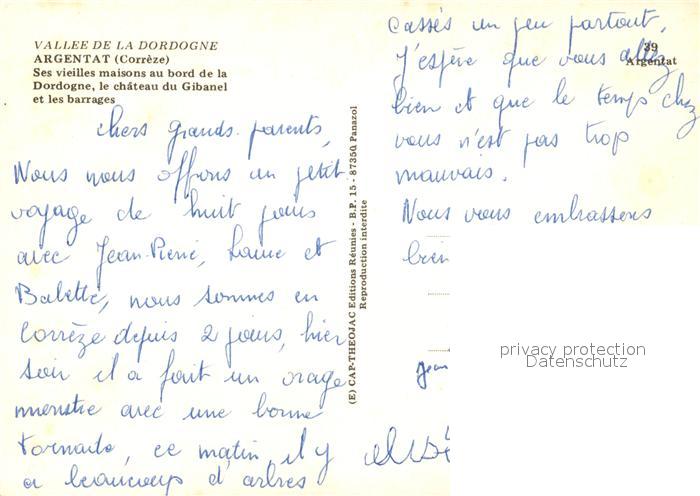 VALLEE DE LA DORDOGNE
ARGENTAT (Corrèze)
Ses vieilles maisons au bord de la
Dordogne, le château du Gibanel
et les barrages
chers grands-parents,
Nous nous offrons un petit
voyage de huit jours
avec Jean-Pierre, et
Babette, nous sommes en
Corrèze depuis 2 jours, hier
soir il a fait un orage
monstre avec une bonne
tornade, ce matin, il y
a beaucoup d'arbres
(E) CAP-THEOJAC Editions Réunies - B.P. 15 - 87350 Panazol
Reproduction interdite
39
Argentat
cassés un peu partout.
J'espère que vous allez
bien et que le temps chez
vous n'est pas trop
mauvais.
Nous vous embrassons
bien
Jean
privacy protection
Datenschutz